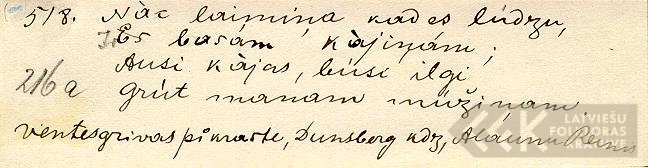 518. Nāc laimiņa kad es lūdzu,
Es basām kājiņām;
Ausi kājas, būsi ilgi
216a grūt manam mūžiņam
ventesgrivas pikraste, Dunsberg kdz,
LATVIEŠU FOLKLORAS KRĀTUVE